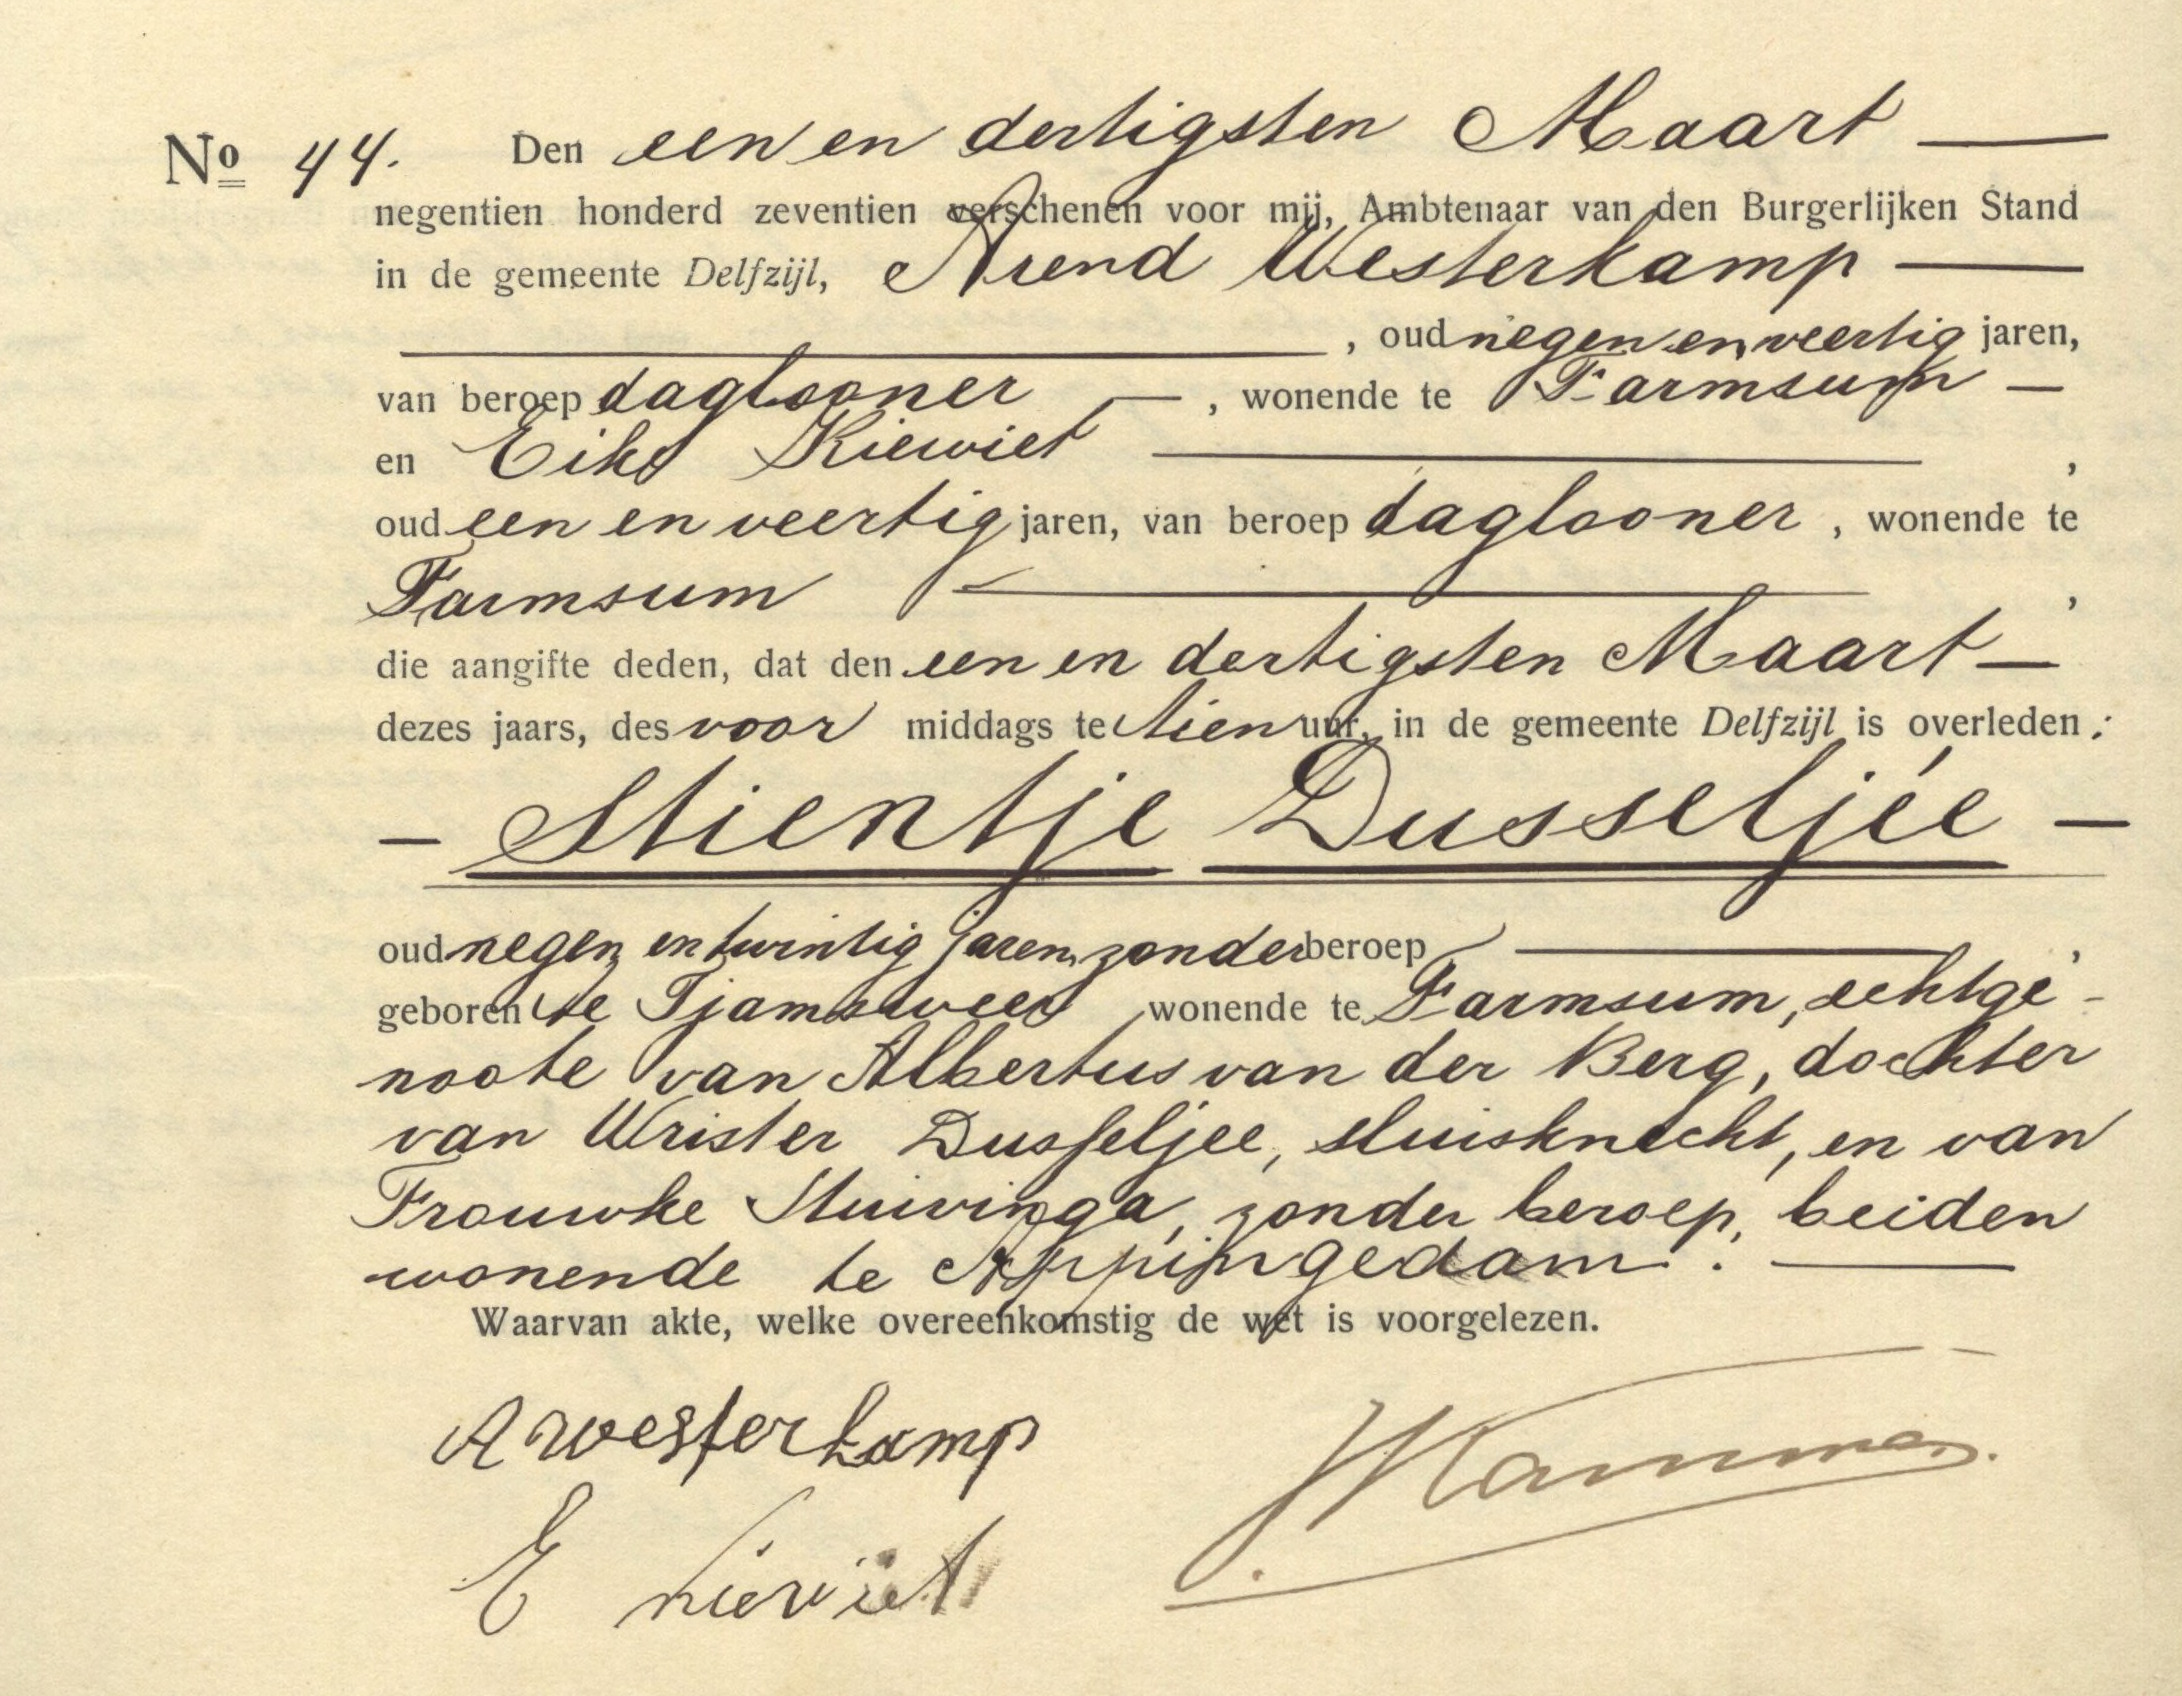 No 44. Den een en dertigsten Maart
negentien honderd zeventien verschenen voor mij, Ambtenaar van den Burgerlijken Stand
in de gemeente Delfzijl, Arend Westerkamp
, oud negen en veertig jaren,
van beroep daglooner, wonende te Farmsum
en Eiko Kiewiet ,
oud een en veertig jaren, van beroep daglooner, wonende te
Farmsum ,
die aangifte deden, dat den een en dertigsten Maart
dezes jaars, des voor middags te tien uur, in de gemeente Delfzijl is overleden:
- Stientje Dusseljée -
oud negen en twintig jaren, zonder beroep ,
geboren te Tjamsweer, wonende te Farmsum, echtge-
noote van Albertus van der Berg, dochter
van Wrister Dusseljee, sluisknecht, en van
Frouwke Stuivinga, zonder beroep, beiden
wonende te Appingedam.
Waarvan akte, welke overeenkomstig de wet is voorgelezen.
A Westerkamp
E Kieviet